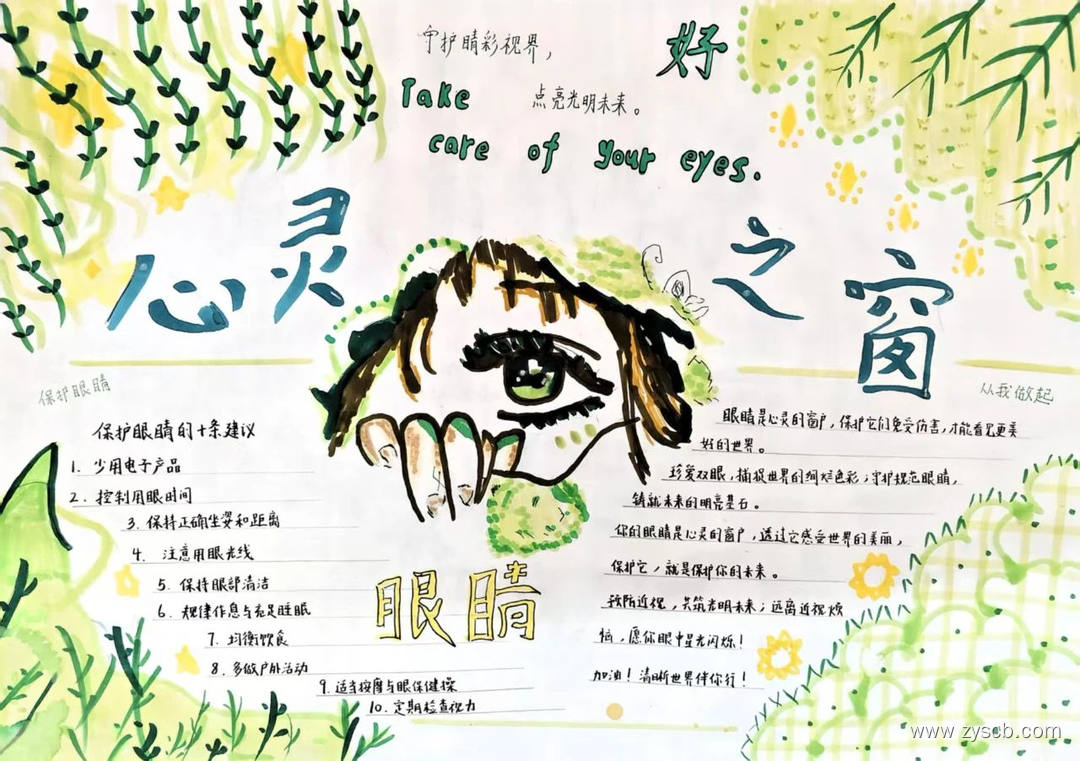 守护睛彩视界，
好
Take
点亮光明未来。
care of your eyes.
心灵
之窗
保护眼睛
从我做起
保护眼睛的十条建议
1. 少用电子产品
2. 控制用眼时间
3. 保持正确坐姿和距离
4. 注意用眼光线
5. 保持眼部清洁
6. 规律作息与充足睡眠
7. 均衡饮食
8. 多做户外活动
9. 适当按摩与眼保健操
10. 定期检查视力
眼睛
眼睛是心灵的窗户，保护它们免受伤害，才能看见更美
好的世界。
珍爱双眼，捕捉世界的绚烂色彩；守护规范眼睛，
铸就未来的明亮基石。
你的眼睛是心灵的窗户，透过它感受世界的美丽，
保护它，就是保护你的未来。
预防近视，共筑光明未来；远离近视烦
恼，愿你眼中星光闪烁！
加油！清晰世界伴你行！
www.zyscb.com